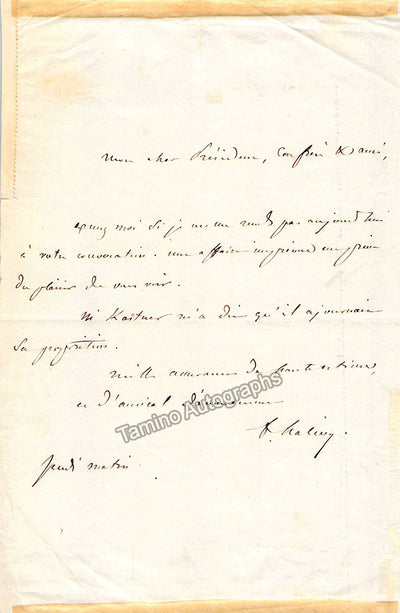 Mon cher Président, Confrère & ami,
excusez moi si je ne me rends pas aujourd'hui
à votre convocation. une affaire imprévue me prive
du plaisir de vous voir.
M Kastner m'a dit qu'il ajournait
sa proposition.
mille assurances de haute estime,
et d'amical dévouement
f. halévy.
Jeudi matin.
Tamino Autographs